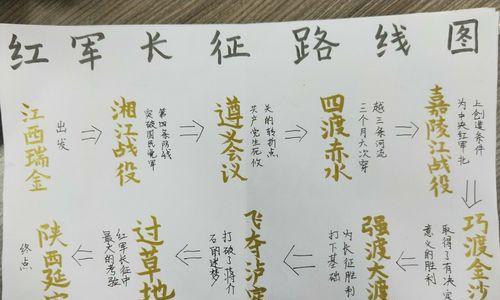 红军长征路线图
江西瑞金
出发
湘江战役
突破国民党军
第四条防线
遵义会议
共产党生死攸
关的转折点
四渡赤水
三个月六次穿
越三条河流
嘉陵江战役
为中央红军北
上创造条件
巧渡金沙
取得了有决定
意义的胜利
强渡大渡
为长征胜利
打下基础
飞夺泸定
打破了蒋介
石的迷梦
过草地
红军长征中
最大的考验
陕西延
终点